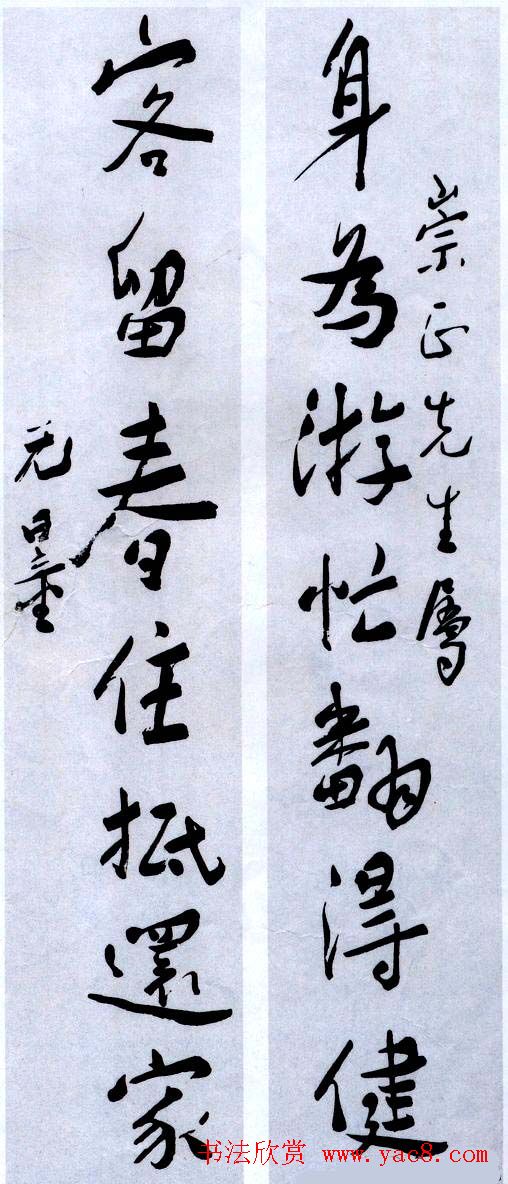 崇正先生属
身為游忙翻得健
客留春住抵還家
无量
书法欣赏 www.yac8.com